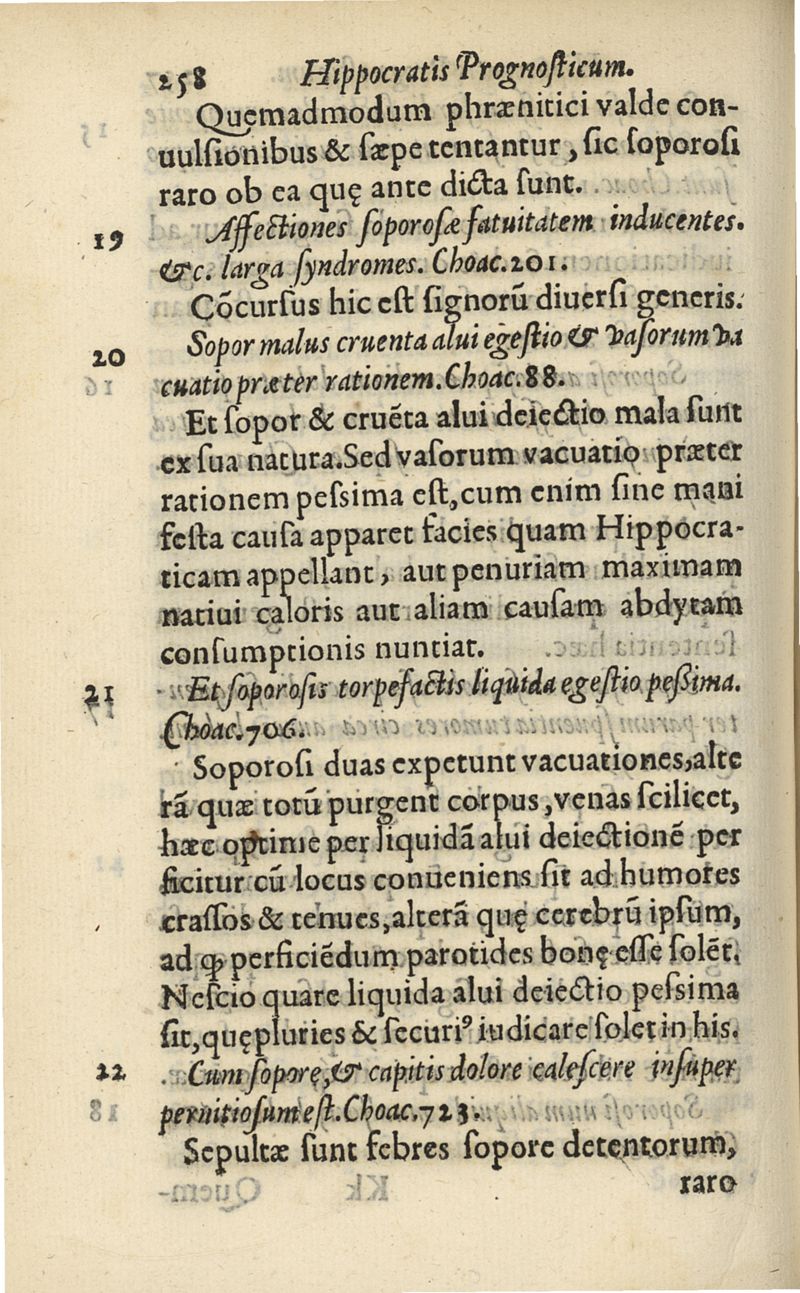 258 Hippocratis Prognosticum.
Quemadmodum phrænitici valde con-
uulſionibus & ſæpe tentantur, ſic ſoporoſi
raro ob ea quę ante dicta ſunt.
19 Affectiones ſoporoſæ fatuitatem inducentes.
&c. larga ſyndromes. Choac. 201.
Cõcurſus hic eſt ſignorũ diuerſi generis.
20 Sopor malus cruenta alui egeſtio & vaſorum va
cuatio præter rationem. Choac. 88.
Et ſopor & cruẽta alui deiectio mala ſunt
ex ſua natura. Sed vaſorum vacuatio præter
rationem peſsima eſt, cum enim ſine mani
feſta cauſa apparet facies quam Hippocra-
ticam appellant, aut penuriam maximam
natiui caloris aut aliam cauſam abdytam
conſumptionis nuntiat.
21 Et ſoporoſis torpefactis liquida egeſtio peſsima.
Choac. 706.
Soporoſi duas expetunt vacuationes, alte
rã quæ totũ purgent corpus, venas ſcilicet,
hæc optime per liquidã alui deiectionẽ per
ficitur cũ locus conueniens ſit ad humores
craſſos & tenues, alterã quę cerebrũ ipſum,
ad ꝙ perficiẽdum parotides bonę eſſe ſolẽt.
Neſcio quare liquida alui deiectio peſsima
ſit, quę pluries & ſecuriꝰ iudicare ſolet in his.
22 Cum ſoporę, & capitis dolore caleſcere inſuper
pernitioſum eſt. Choac. 723.
Sepultæ ſunt febres ſopore detentorum,
raro